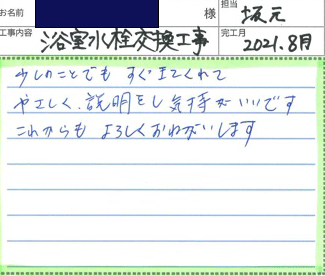 お名前 様 担当 坂元
工事内容 浴室水栓交換工事 完工月 2021.8月
少しのことでも すぐきてくれて
やさしく、説明をし気持がいいです
これからも よろしくおねがいします